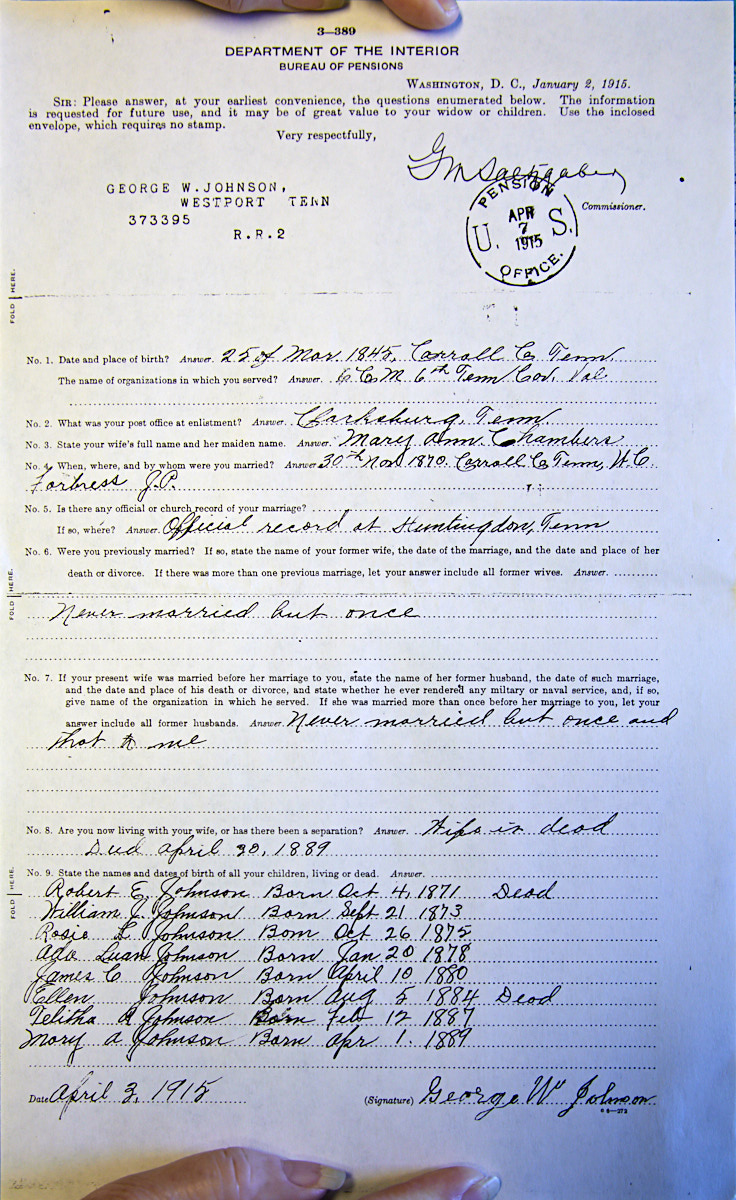 3—389
DEPARTMENT OF THE INTERIOR
BUREAU OF PENSIONS
WASHINGTON, D. C., January 2, 1915.
SIR: Please answer, at your earliest convenience, the questions enumerated below. The information
is requested for future use, and it may be of great value to your widow or children. Use the inclosed
envelope, which requires no stamp.
Very respectfully,
GEORGE W. JOHNSON,
WESTPORT TENN
373395
R.R.2
Commissioner.
PENSION
APR
7
1915
U. S.
OFFICE.
FOLD HERE.
No. 1. Date and place of birth? Answer. 25 of Mar. 1845, Carroll Co Tenn
The name of organizations in which you served? Answer. Co M 6th Tenn Cav. Vol
No. 2. What was your post office at enlistment? Answer. Clarksburg, Tenn
No. 3. State your wife's full name and her maiden name. Answer. Mary Ann Chambers
No. 4. When, where, and by whom were you married? Answer. 30th Nov 1870. Carroll Co Tenn, W.C.
Fortress J.P.
No. 5. Is there any official or church record of your marriage?
If so, where? Answer. Official record at Huntingdon, Tenn
No. 6. Were you previously married? If so, state the name of your former wife, the date of the marriage, and the date and place of her
death or divorce. If there was more than one previous marriage, let your answer include all former wives. Answer.
FOLD HERE.
Never married but once
No. 7. If your present wife was married before her marriage to you, state the name of her former husband, the date of such marriage,
and the date and place of his death or divorce, and state whether he ever rendered any miltary or naval service, and, if so,
give name of the organization in which he served. If she was married more than once before her marriage to you, let your
answer include all former husbands. Answer. Never married but once and
that to me
No. 8. Are you now living with your wife, or has there been a separation? Answer. Wife is dead
Died April 30, 1889
No. 9. State the names and dates of birth of all your children, living or dead. Answer.
FOLD HERE.
Robert E. Johnson Born Oct 4, 1871 Dead
William J. Johnson Born Sept 21 1873
Rosie L Johnson Born Oct 26 1875
Ada Luan Johnson Born Jan 20 1878
James C Johnson Born April 10 1880
Ellen Johnson Born Aug 5 1884 Dead
Telitha A Johnson Born Feb 12 1887
Mary A Johnson Born Apr 1. 1889
Date April 3, 1915 (Signature) George W Johnson